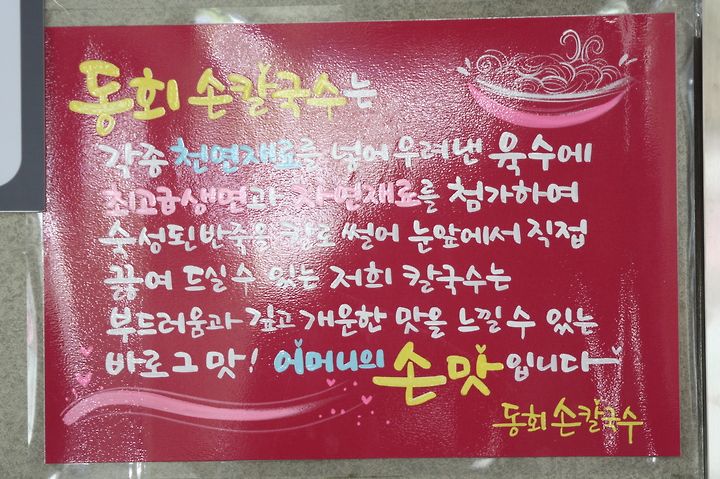 동회 손칼국수는
각종 천연재료를 넣어 우려낸 육수에
최고급생면과 자연재료를 첨가하여
숙성된 반죽을 칼로 썰어 눈앞에서 직접
끓여 드실 수 있는 저희 칼국수는
부드러움과 깊고 개운한 맛을 느낄 수 있는
바로 그 맛! 어머니의 손맛입니다
동회 손칼국수